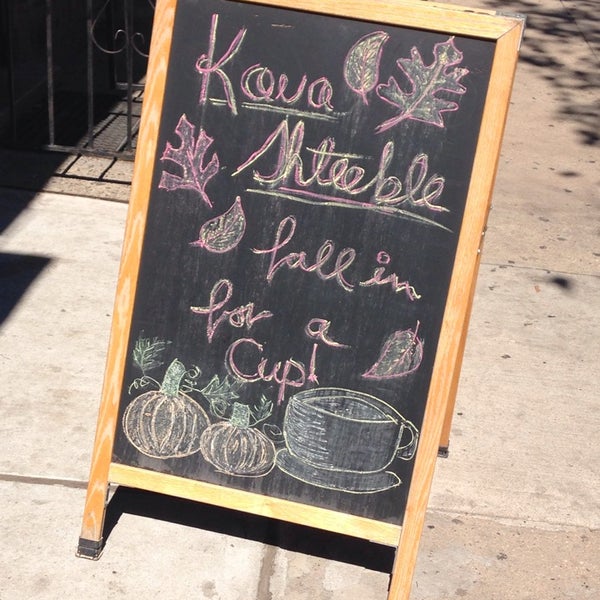 Kava
Shteeble
fall in
for a
Cup!